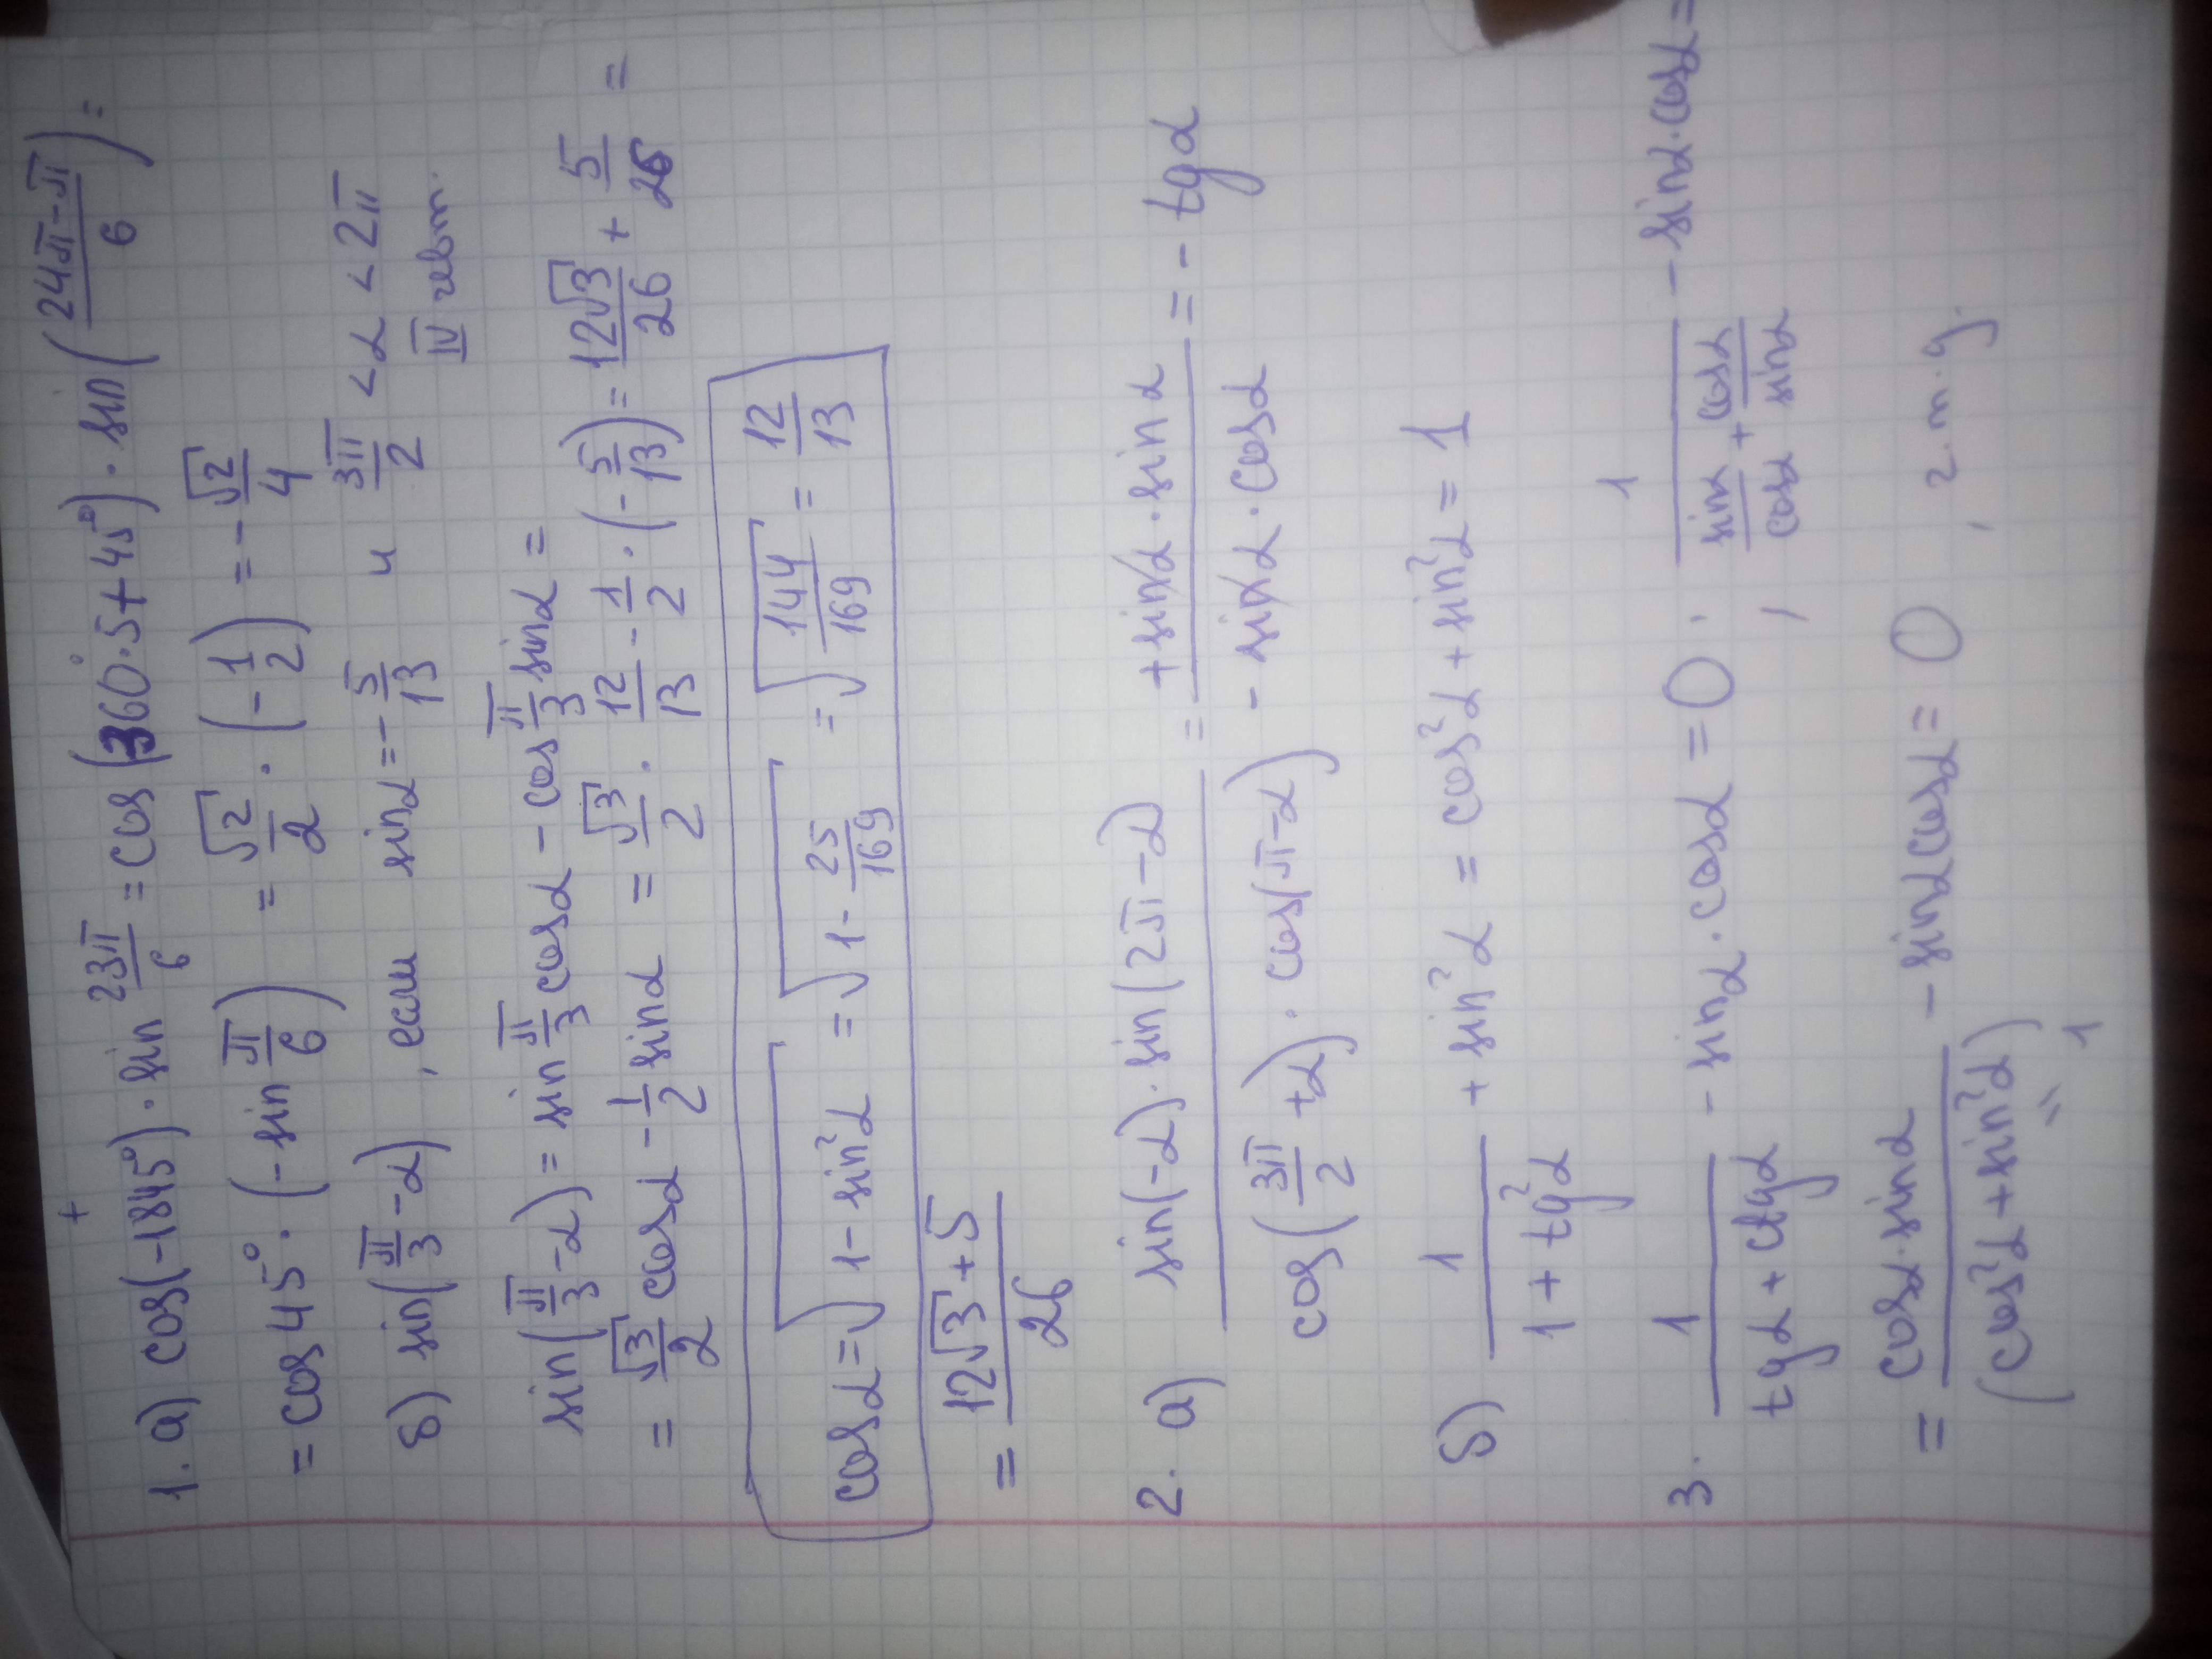 1. а) cos(-1845°) · sin 23π/6 = cos(360°·5+45°) · sin((24π-π)/6) =
= cos 45° · (-sin π/6) = √2/2 · (-1/2) = -√2/4
б) sin(π/3 - α), если sinα = -5/13 и 3π/2 < α < 2π
IV четв.
sin(π/3 - α) = sin π/3 cosα - cos π/3 sinα =
= √3/2 cosα - 1/2 sinα = √3/2 · 12/13 - 1/2 · (-5/13) = 12√3/26 + 5/26 =
cosα = √(1-sin²α) = √(1-25/169) = √(144/169) = 12/13
= (12√3+5)/26
2. а) (sin(-α)·sin(2π-α))/(cos(3π/2+α)·cos(π-α)) = (+sinα·sinα)/(-sinα·cosα) = -tgα
б) 1/(1+tg²α) + sin²α = cos²α + sin²α = 1
3. 1/(tgα+ctgα) - sinα·cosα = 0; 1/(sinα/cosα + cosα/sinα) - sinα·cosα =
= (cosα·sinα)/(cos²α+sin²α) - sinαcosα = 0, ч.т.д.
" 1